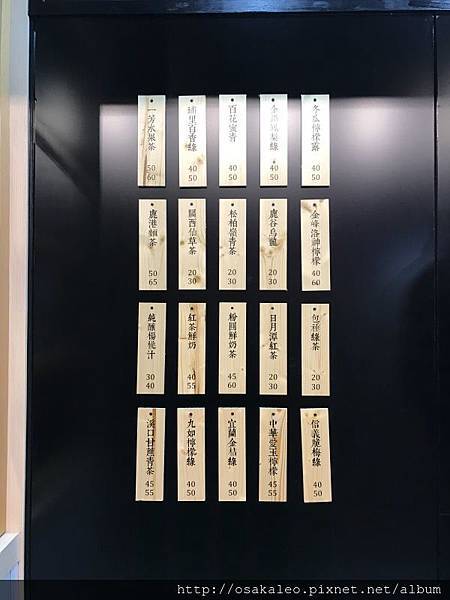 一芳水果茶
50
60
埔里百香綠
40
50
百花蜜青
40
50
金鑽鳳梨綠
40
50
冬瓜檸檬露
40
50
鹿港麵茶
50
65
關西仙草茶
20
30
松柏嶺青茶
20
30
鹿谷烏龍
20
30
金峰洛神檸檬
40
60
純釀楊桃汁
30
40
紅茶鮮奶
40
55
粉圓鮮奶茶
45
60
日月潭紅茶
20
30
包種綠茶
20
30
溪口甘蔗青茶
45
55
九如檸檬綠
40
50
宜蘭金桔綠
40
50
中華愛玉檸檬
45
55
信義脆梅綠
40
50
http://osakaleo.pixnet.net/album